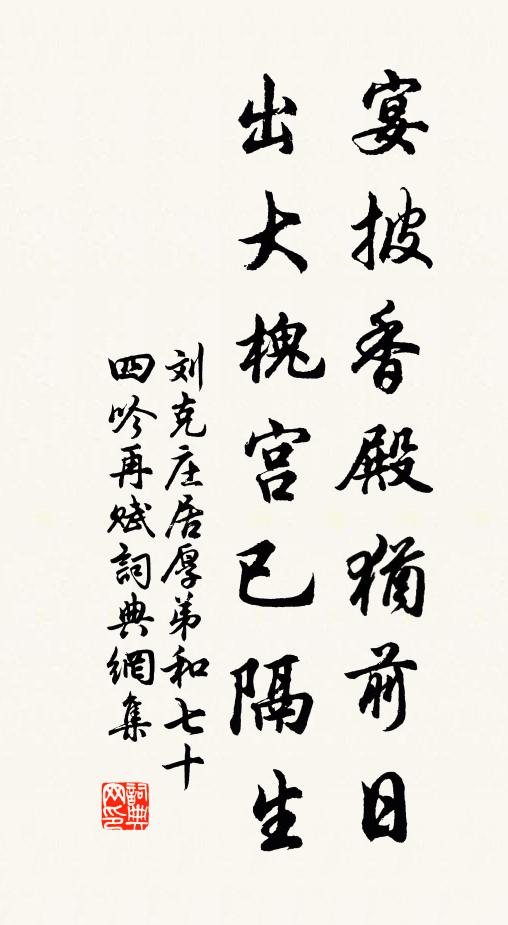 宴披香殿猶前日
出大槐宫已隔生
刘克庄居厚弟和七十
四吟再赋詞典網集
詞典网印